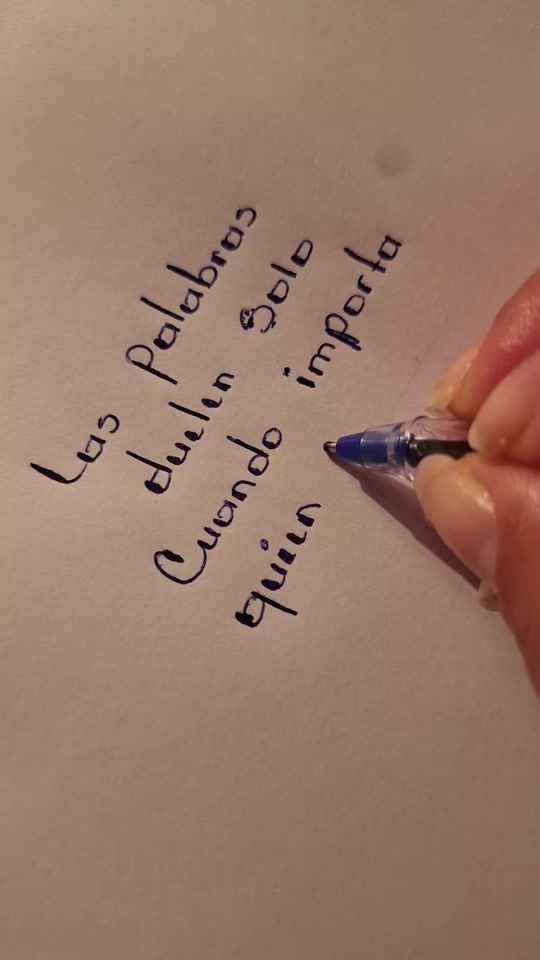 Las Palabras
duelen Solo
Cuando importa
quien